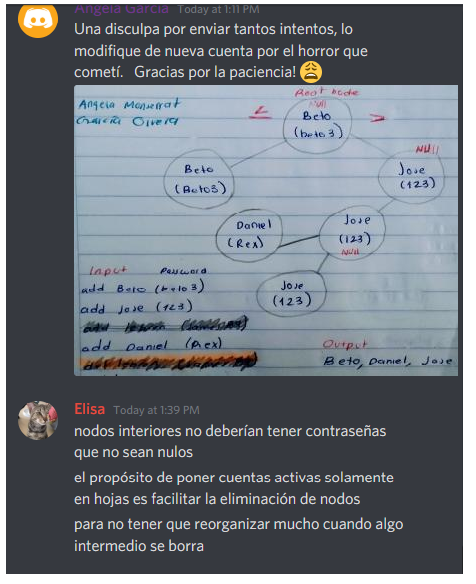 Angela García Today at 1:11 PM
Una disculpa por enviar tantos intentos, lo
modifique de nueva cuenta por el horror que
cometí. Gracias por la paciencia! 😩
Angela Monserrat
García Olvera
Root node
Null
<
Beto
(beto3)
>
Beto
(Beto3)
Null
Jose
(123)
Daniel
(Rex)
Jose
(123)
Null
Jose
(123)
Input Password
add Beto (beto3)
add Jose (123)
add Daniel (Rex)
Output
Beto, Daniel, Jose
Elisa Today at 1:39 PM
nodos interiores no deberían tener contraseñas
que no sean nulos
el propósito de poner cuentas activas solamente
en hojas es facilitar la eliminación de nodos
para no tener que reorganizar mucho cuando algo
intermedio se borra